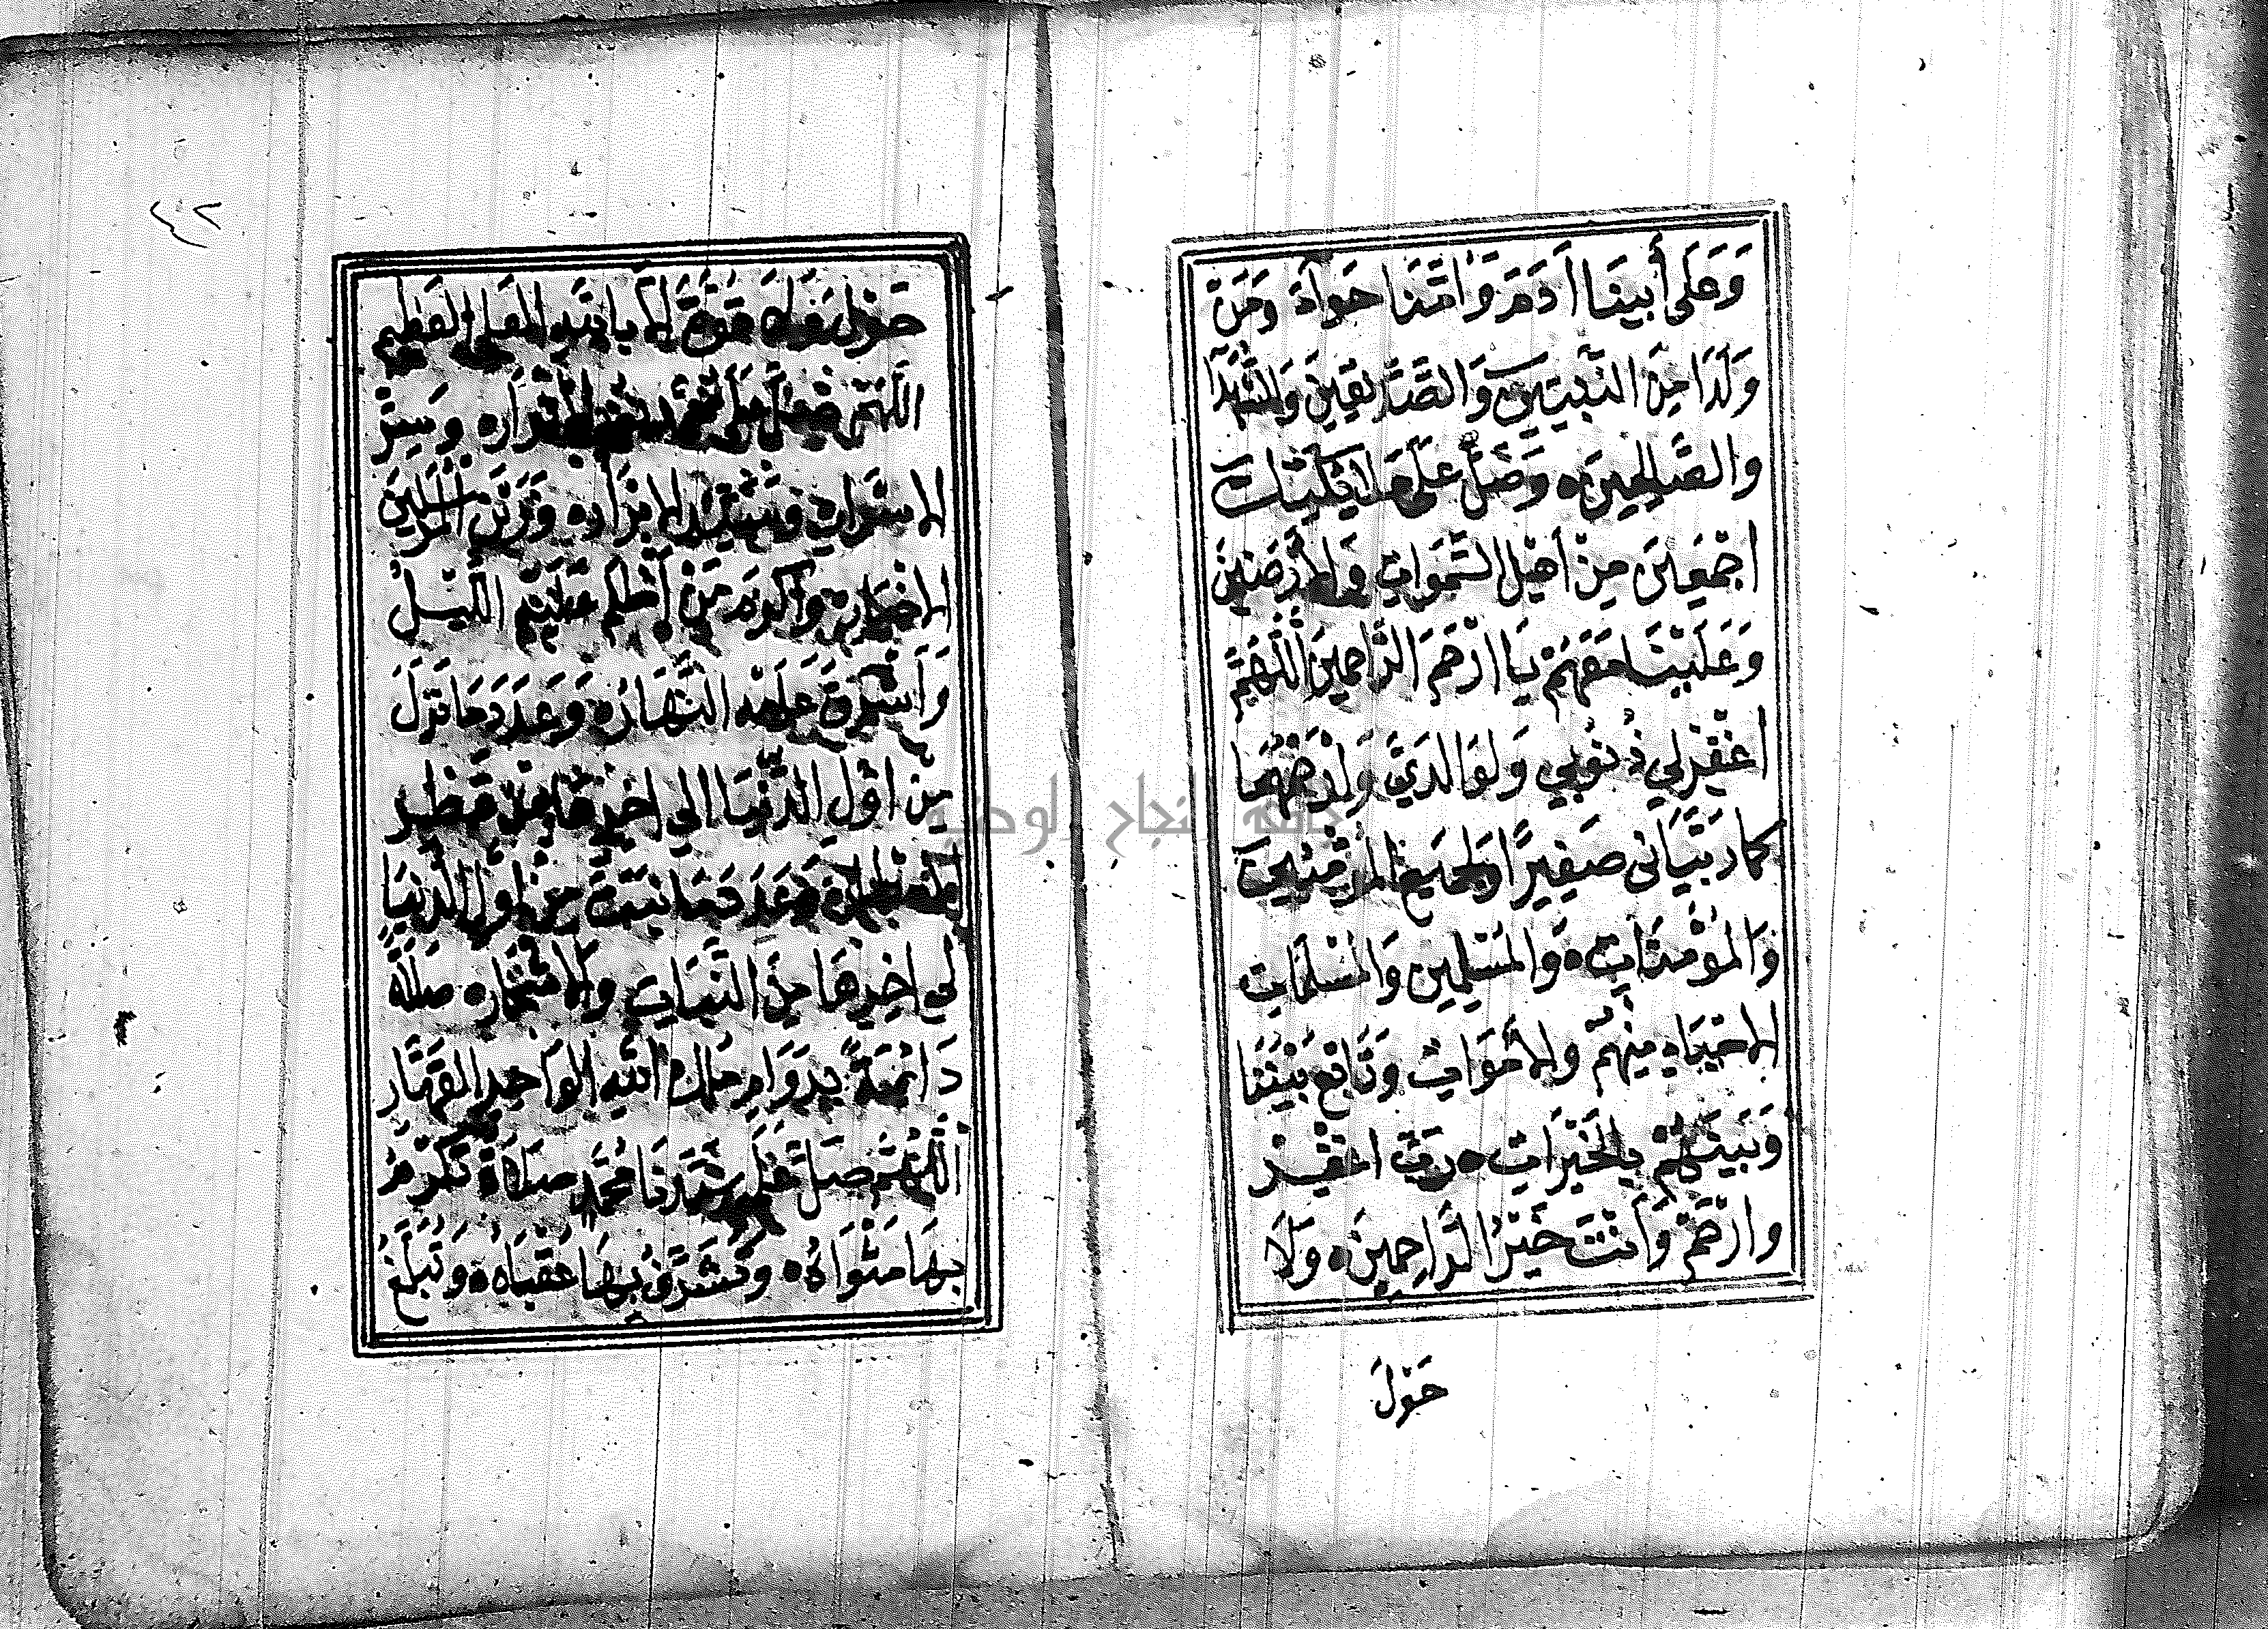 وَعَلَى أَبِينَا آدَمَ وَأُمِّنَا حَوَّآءَ وَمَنْ
وَلَدَا مِنَ النَّبِيِّينَ وَالصِّدِّيقِينَ وَالشُّهَدَآ
وَالصَّالِحِينَ ۝ وَصَلِّ عَلَى مَلَائِكَتِكَ
اَجْمَعِينَ مِنْ اَهْلِ السَّمَوَاتِ وَالْأَرَضِينَ
وَعَلَيْنَا مَعَهُمْ يَا اَرْحَمَ الرَّاحِمِينَ اَللّٰهُمَّ
اغْفِرْلِي ذُنُوبِي وَلِوَالِدَيَّ وَارْحَمْهُمَا
كَمَا رَبَّيَانِي صَغِيرًا وَلِجَمِيعِ الْمُؤْمِنِينَ
وَالْمُؤْمِنَاتِ ۝ وَالْمُسْلِمِينَ وَالْمُسْلِمَاتِ
الْاَحْيَاءِ مِنْهُمْ وَالْأَمْوَاتِ وَتَابِعْ بَيْنَنَا
وَبَيْنَهُمْ بِالْخَيْرَاتِ ۝ رَبِّ اغْفِرْ
وَارْحَمْ وَأَنْتَ خَيْرُ الرَّاحِمِينَ ۝ وَلَا
حَوْلَ
٤٢
حَوْلَ وَلَا قُوَّةَ إِلَّا بِاللّٰهِ الْعَلِيِّ الْعَظِيمِ
اَللّٰهُمَّ صَلِّ عَلَى مُحَمَّدٍ نُورِ الْأَنْوَارِ ۝ وَسِرِّ
الْاَسْرَارِ وَسَيِّدِ الْاَبْرَارِ ۝ وَزَيْنِ الْمُرْسَلِينَ
الْاَخْيَارِ ۝ وَأَكْرَمِ مَنْ أَظْلَمَ عَلَيْهِ اللَّيْلُ
وَأَشْرَقَ عَلَيْهِ النَّهَارُ ۝ وَعَدَدَ مَا نَزَلَ
مِنْ اَوَّلِ الدُّنْيَا اِلَى اٰخِرِهَا مِنْ قَطْرِ
الْاَمْطَارِ ۝ وَعَدَدَ مَا نَبَتَ مِنْ اَوَّلِ الدُّنْيَا
اِلَى اٰخِرِهَا مِنَ النَّبَاتِ وَالْاَشْجَارِ ۝ صَلَاةً
دَائِمَةً بِدَوَامِ مُلْكِ اللّٰهِ الْوَاحِدِ الْقَهَّارِ
اَللّٰهُمَّ صَلِّ عَلَى سَيِّدِنَا مُحَمَّدٍ صَلَاةً تُكْرِمُ
بِهَا مَثْوَاهُ ۝ وَتُشَرِّفُ بِهَا عُقْبَاهُ ۝ وَتُبَلِّغُ